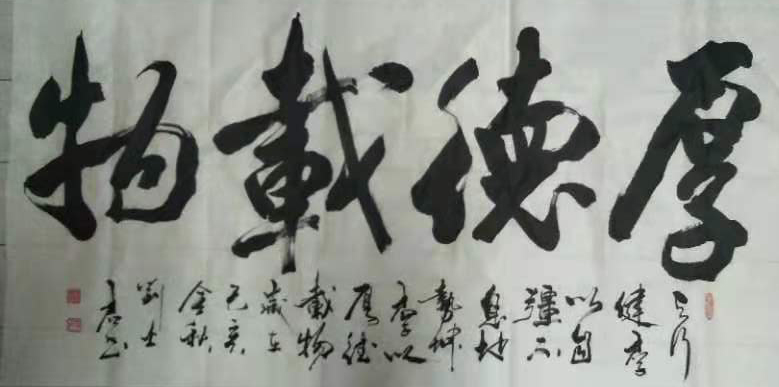 厚德載物
天行
健君
以自
彊不
息地
勢坤
君以
厚德
載物
歲在
己亥
金秋
劉士